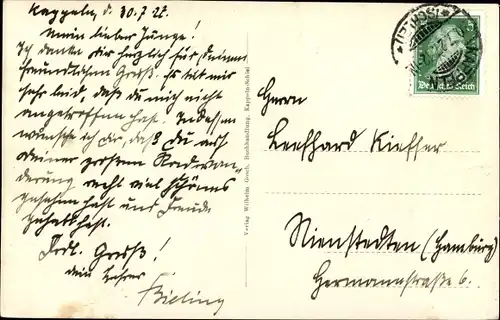 Kappeln, d. 30.7.27.
Mein lieber Junge!
Ich danke dir herzlich für deinen
freundlichen Gruß. Es tut mir
sehr leid, daß du mich nicht
angetroffen hast. Indessen
wünsche ich dir, daß du auf
deiner großen
recht viel schönes
gesehen hast und Freude
gehabt hast.
Frdl. Gruß!
dein Lehrer
Bieling
Verlag Wilhelm Gosch, Buchhandlung, Kapp
Deutsches Reich
Herrn
Leefhard Kieffer
Nienstedten (Hamburg)
Hermannstraße 6.